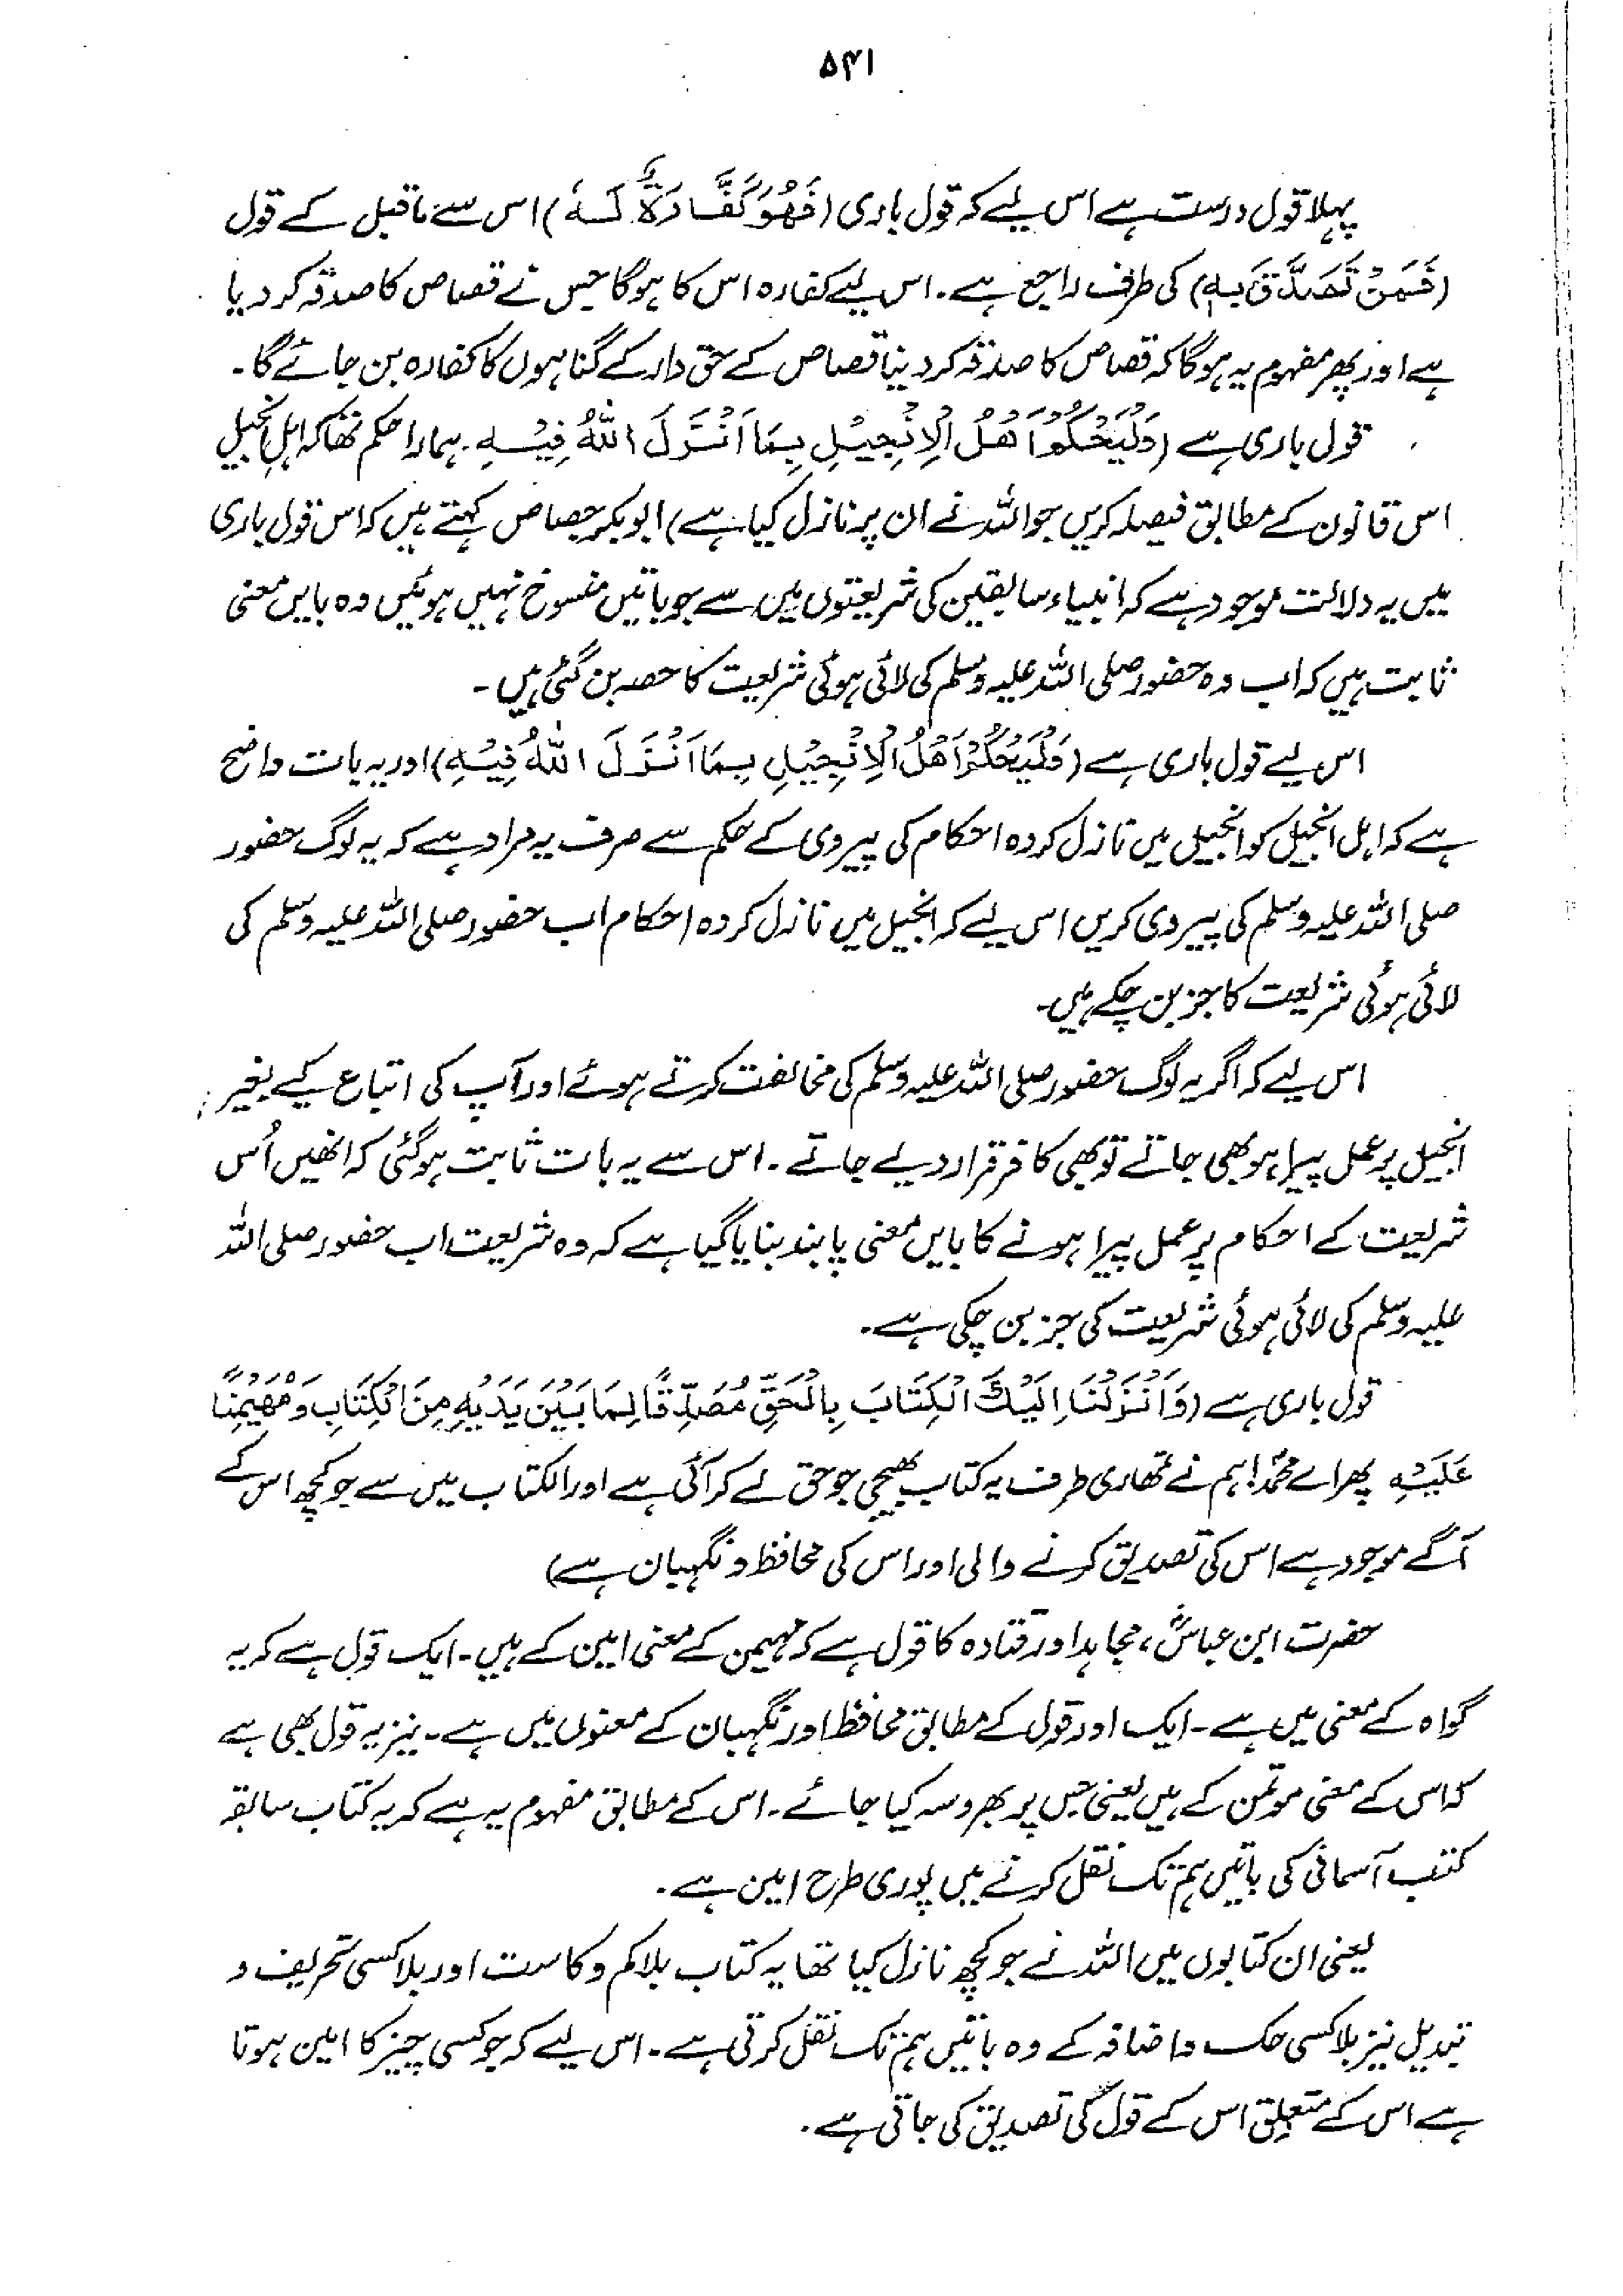 ۵۴۱
پہلا قول درست ہے اس لیے کہ قول باری (فَهُوَ كَفَّارَةٌ لَهُ) اس سے ماقبل کے قول
(فَمَنْ تَصَدَّقَ بِهِ) کی طرف راجع ہے۔ اس لیے کفارہ اس کا ہوگا جس نے قصاص کا صدقہ کر دیا
ہے اور پھر مفہوم یہ ہوگا کہ قصاص کا صدقہ کر دینا قصاص کے حق دار کے گناہوں کا کفارہ بن جائے گا۔
قول باری ہے (وَلْيَحْكُمْ أَهْلُ الْإِنْجِيلِ بِمَا أَنْزَلَ اللهُ فِيْهِ۔ ہمارا حکم تھا کہ اہلِ انجیل
اس قانون کے مطابق فیصلہ کریں جو اللہ نے ان پر نازل کیا ہے) ابوبکر جصاص کہتے ہیں کہ اس قول باری
میں یہ دلالت موجود ہے کہ انبیاء سابقین کی شریعتوں میں سے جو باتیں منسوخ نہیں ہوئیں وہ بایں معنی
ثابت ہیں کہ اب وہ حضور صلی اللہ علیہ وسلم کی لائی ہوئی شریعت کا حصہ بن گئی ہیں۔
اس لیے قول باری ہے (وَلْيَحْكُمْ أَهْلُ الْإِنْجِيْلِ بِمَا أَنْزَلَ اللهُ فِيْهِ) اور یہ بات واضح
ہے کہ اہل انجیل کو انجیل میں نازل کردہ احکام کی پیروی کے حکم سے صرف یہ مراد ہے کہ یہ لوگ حضور
صلی اللہ علیہ وسلم کی پیروی کریں اس لیے کہ انجیل میں نازل کردہ احکام اب حضور صلی اللہ علیہ وسلم کی
لائی ہوئی شریعت کا جز بن چکے ہیں۔
اس لیے کہ اگر یہ لوگ حضور صلی اللہ علیہ وسلم کی مخالفت کرتے ہوئے اور آپ کی اتباع کیے بغیر
انجیل پر عمل پیرا ہو بھی جاتے تو بھی کافر قرار دیے جاتے۔ اس سے یہ بات ثابت ہوگئی کہ انھیں اُس
شریعت کے احکام پر عمل پیرا ہونے کا بایں معنی پابند بنایا گیا ہے کہ وہ شریعت اب حضور صلی اللہ
علیہ وسلم کی لائی ہوئی شریعت کی جز بن چکی ہے۔
قول باری ہے (وَأَنْزَلْنَا إِلَيْكَ الْكِتَابَ بِالْحَقِّ مُصَدِّقًا لِمَا بَيْنَ يَدَيْهِ مِنَ الْكِتَابِ وَمُهَيْمِنًا
عَلَيْهِ پھر اے محمدؐ! ہم نے تمھاری طرف یہ کتاب بھیجی جو حق لے کر آئی ہے اور الکتاب میں سے جو کچھ اس کے
آگے موجود ہے اس کی تصدیق کرنے والی اور اس کی محافظ و نگہبان ہے)
حضرت ابن عباسؓ، مجاہد اور قتادہ کا قول ہے کہ مہیمن کے معنی امین کے ہیں۔ ایک قول ہے کہ یہ
گواہ کے معنی میں ہے۔ ایک اور قول کے مطابق محافظ اور نگہبان کے معنوں میں ہے۔ نیز یہ قول بھی ہے
کہ اس کے معنی موتمن کے ہیں یعنی جس پر بھروسہ کیا جائے۔ اس کے مطابق مفہوم یہ ہے کہ یہ کتاب سابقہ
کتب آسمانی کی باتیں ہم تک نقل کرنے میں پوری طرح امین ہے۔
یعنی ان کتابوں میں اللہ نے جو کچھ نازل کیا تھا یہ کتاب بلاکم و کاست اور بلا کسی تحریف و
تبدیل نیز بلا کسی حک و اضافہ کے وہ باتیں ہم تک نقل کرتی ہے۔ اس لیے کہ جو کسی چیز کا امین ہوتا
ہے اس کے متعلق اس کے قول کی تصدیق کی جاتی ہے۔